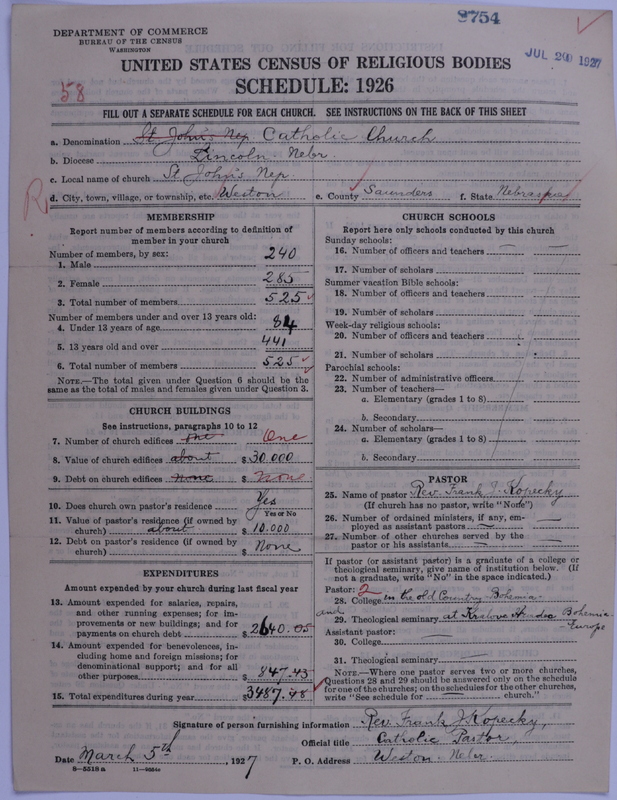 8754
DEPARTMENT OF COMMERCE
BUREAU OF THE CENSUS
WASHINGTON
JUL 20 1927
UNITED STATES CENSUS OF RELIGIOUS BODIES
SCHEDULE: 1926
58
FILL OUT A SEPARATE SCHEDULE FOR EACH CHURCH. SEE INSTRUCTIONS ON THE BACK OF THIS SHEET
a. Denomination St John's Nep. Catholic Church
b. Diocese Lincoln. Nebr.
c. Local name of church St John's Nep
R
d. City, town, village, or township, etc. Weston e. County Saunders f. State Nebraska
MEMBERSHIP
Report number of members according to definition of
member in your church
Number of members, by sex:
1. Male 240
2. Female 285
3. Total number of members 525
Number of members under and over 13 years old:
4. Under 13 years of age 84
5. 13 years old and over 441
6. Total number of members 525
NOTE.—The total given under Question 6 should be
same as the total of males and females given under Question 3.
CHURCH BUILDINGS
See instructions, paragraphs 10 to 12
7. Number of church edifices One One
8. Value of church edifices about $ 30.000
9. Debt on church edifices None $ None
10. Does church own pastor's residence Yes
Yes or No
11. Value of pastor's residence (if owned by
church) about $ 10.000
12. Debt on pastor's residence (if owned by
church) $ None
EXPENDITURES
Amount expended by your church during last fiscal year
13. Amount expended for salaries, repairs,
and other running expenses; for im-
provements or new buildings; and for
payments on church debt $ 2640.05
14. Amount expended for benevolences, in-
cluding home and foreign missions; for
denominational support; and for all
other purposes $ 847.43
15. Total expenditures during year $ 3487.48
CHURCH SCHOOLS
Report here only schools conducted by this church
Sunday schools:
16. Number of officers and teachers
17. Number of scholars
Summer vacation Bible schools:
18. Number of officers and teachers
19. Number of scholars
Week-day religious schools:
20. Number of officers and teachers
21. Number of scholars
Parochial schools:
22. Number of administrative officers
23. Number of teachers—
a. Elementary (grades 1 to 8)
b. Secondary
24. Number of scholars—
a. Elementary (grades 1 to 8)
b. Secondary
PASTOR
25. Name of pastor Rev. Frank J Kopecky
(If church has no pastor, write "None")
26. Number of ordained ministers, if any, em-
ployed as assistant pastors
27. Number of other churches served by the
pastor or his assistants
If pastor (or assistant pastor) is a graduate of a college or
theological seminary, give name of institution below. (If
not a graduate, write "No" in the space indicated.)
Pastor: 2
28. College in the old Country-Bohemia-
and
29. Theological seminary at Bohemia
-Europe
Assistant pastor:
30. College
31. Theological seminary
NOTE.—Where one pastor serves two or more churches,
Questions 28 and 29 should be answered only on the schedule
for one of the churches; on the schedules for the other churches,
write "See schedule for church"
Signature of person furnishing information Rev. Frank J Kopecky,
Official title Catholic Pastor,
Date March 5th, 1927 P. O. Address Weston-Nebr.
8—5518 a 11—9554c